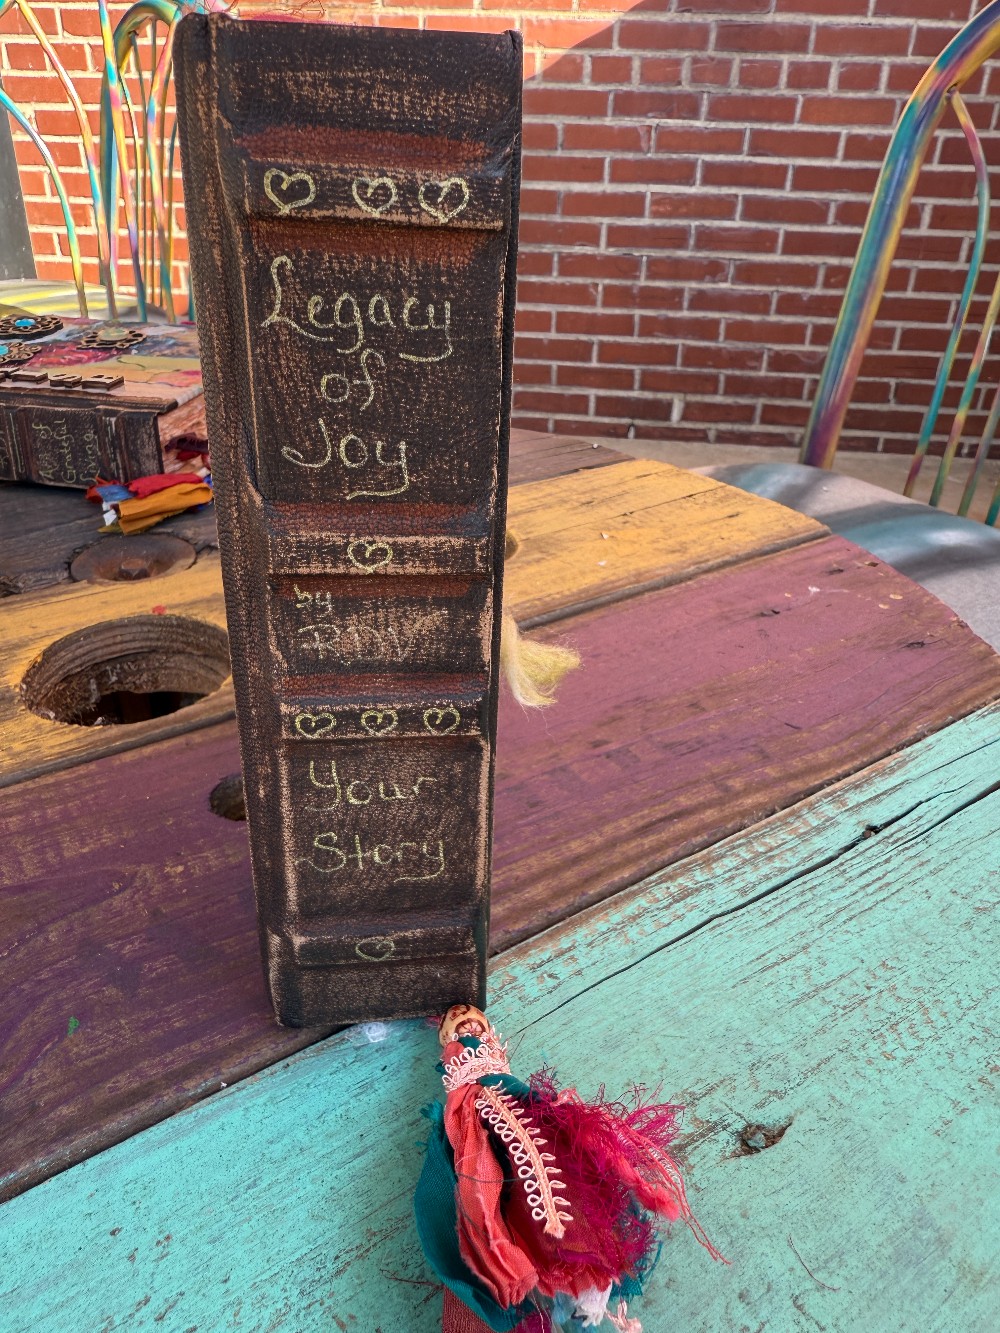 Legacy
of
Joy
by
Your
Story
Art of
Grateful
Living